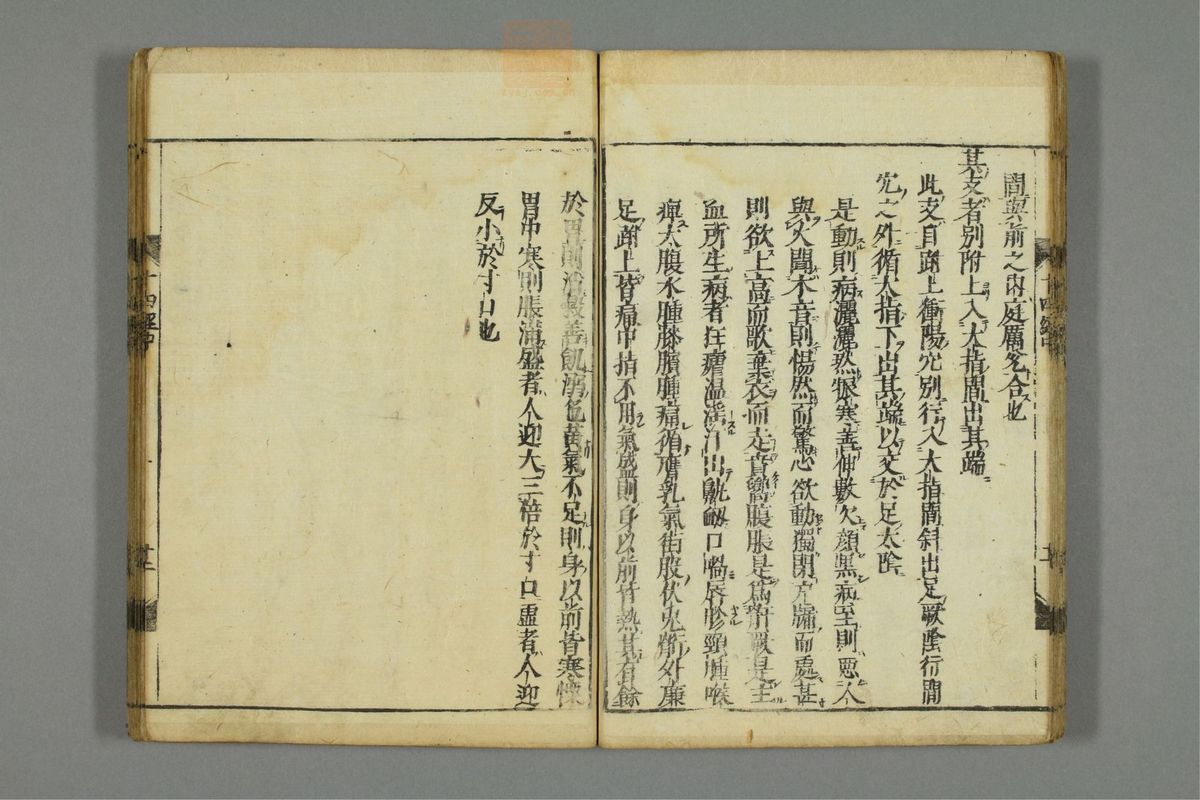 間與前之內庭厲兌合也
其支者別跗上入大指間出其端
此支自跗上衝陽穴別行入大指間斜出足厥陰行間
穴之外循大指下出其端以交於足太陰
是動則病灑灑然振寒善伸數欠顏黑病至則惡人
與火聞木音則惕然而驚心欲動獨閉戶牖而處甚
則欲上高而歌棄衣而走賁響腹脹是為骭厥是主
血所生病者狂瘧溫淫汗出鼽衂口喎唇胗頸腫喉
痺大腹水腫膝臏腫痛循膺乳氣街股伏兎骭外廉
足跗上皆痛中指不用氣盛則身以前皆熱其有餘
於胃前消穀善飢溺色黃氣不足則身以前皆寒慄
胃中寒則脹滿盛者人迎大三倍於寸口虛者人迎
反小於寸口也
十四經中